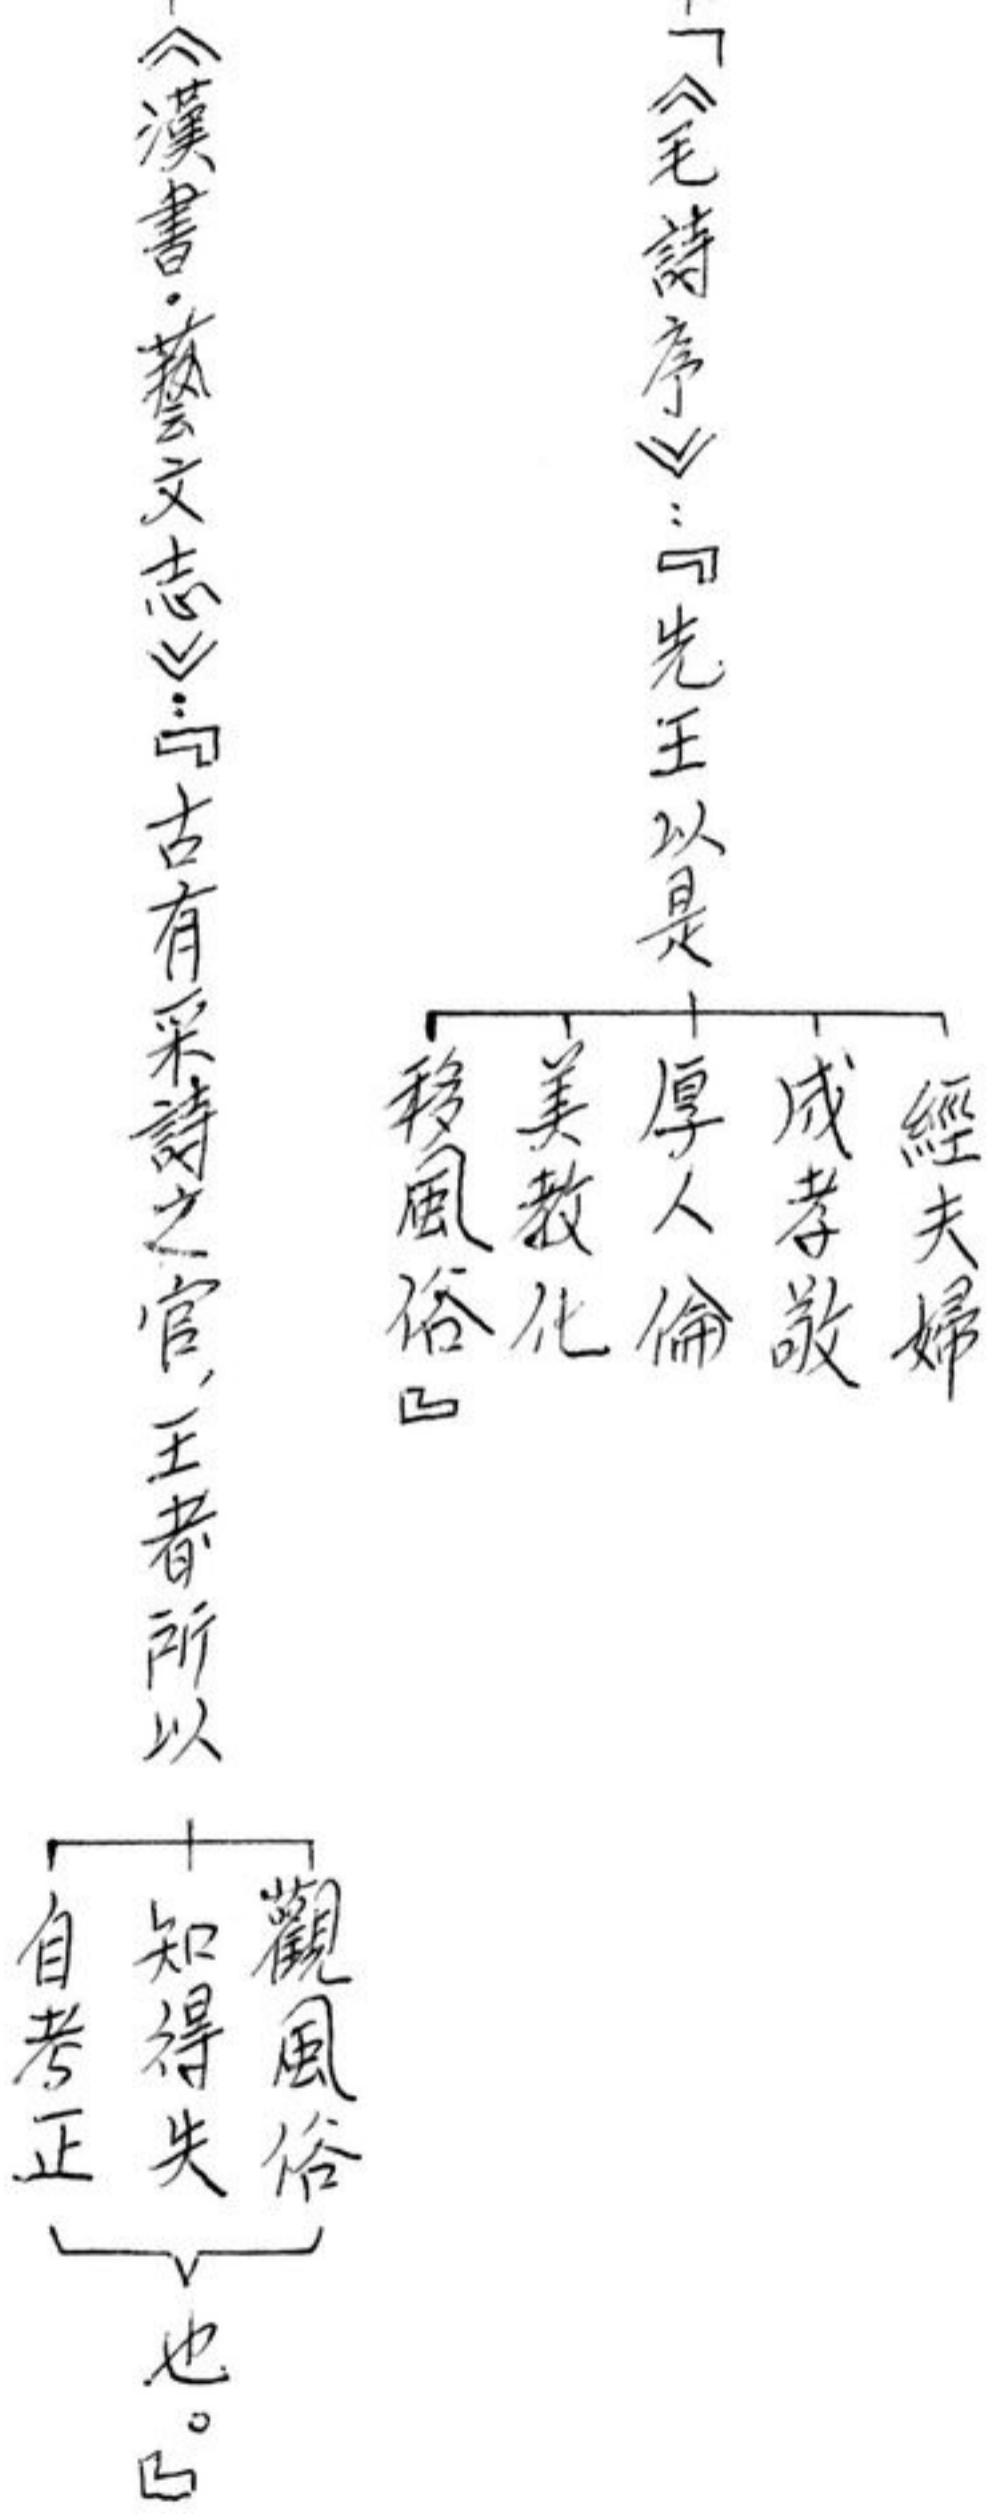 「《毛詩序》：『先王以是
經夫婦
成孝敬
厚人倫
美教化
移風俗』
《漢書·藝文志》：『古有采詩之官，王者所以
觀風俗
知得失
自考正
也。』